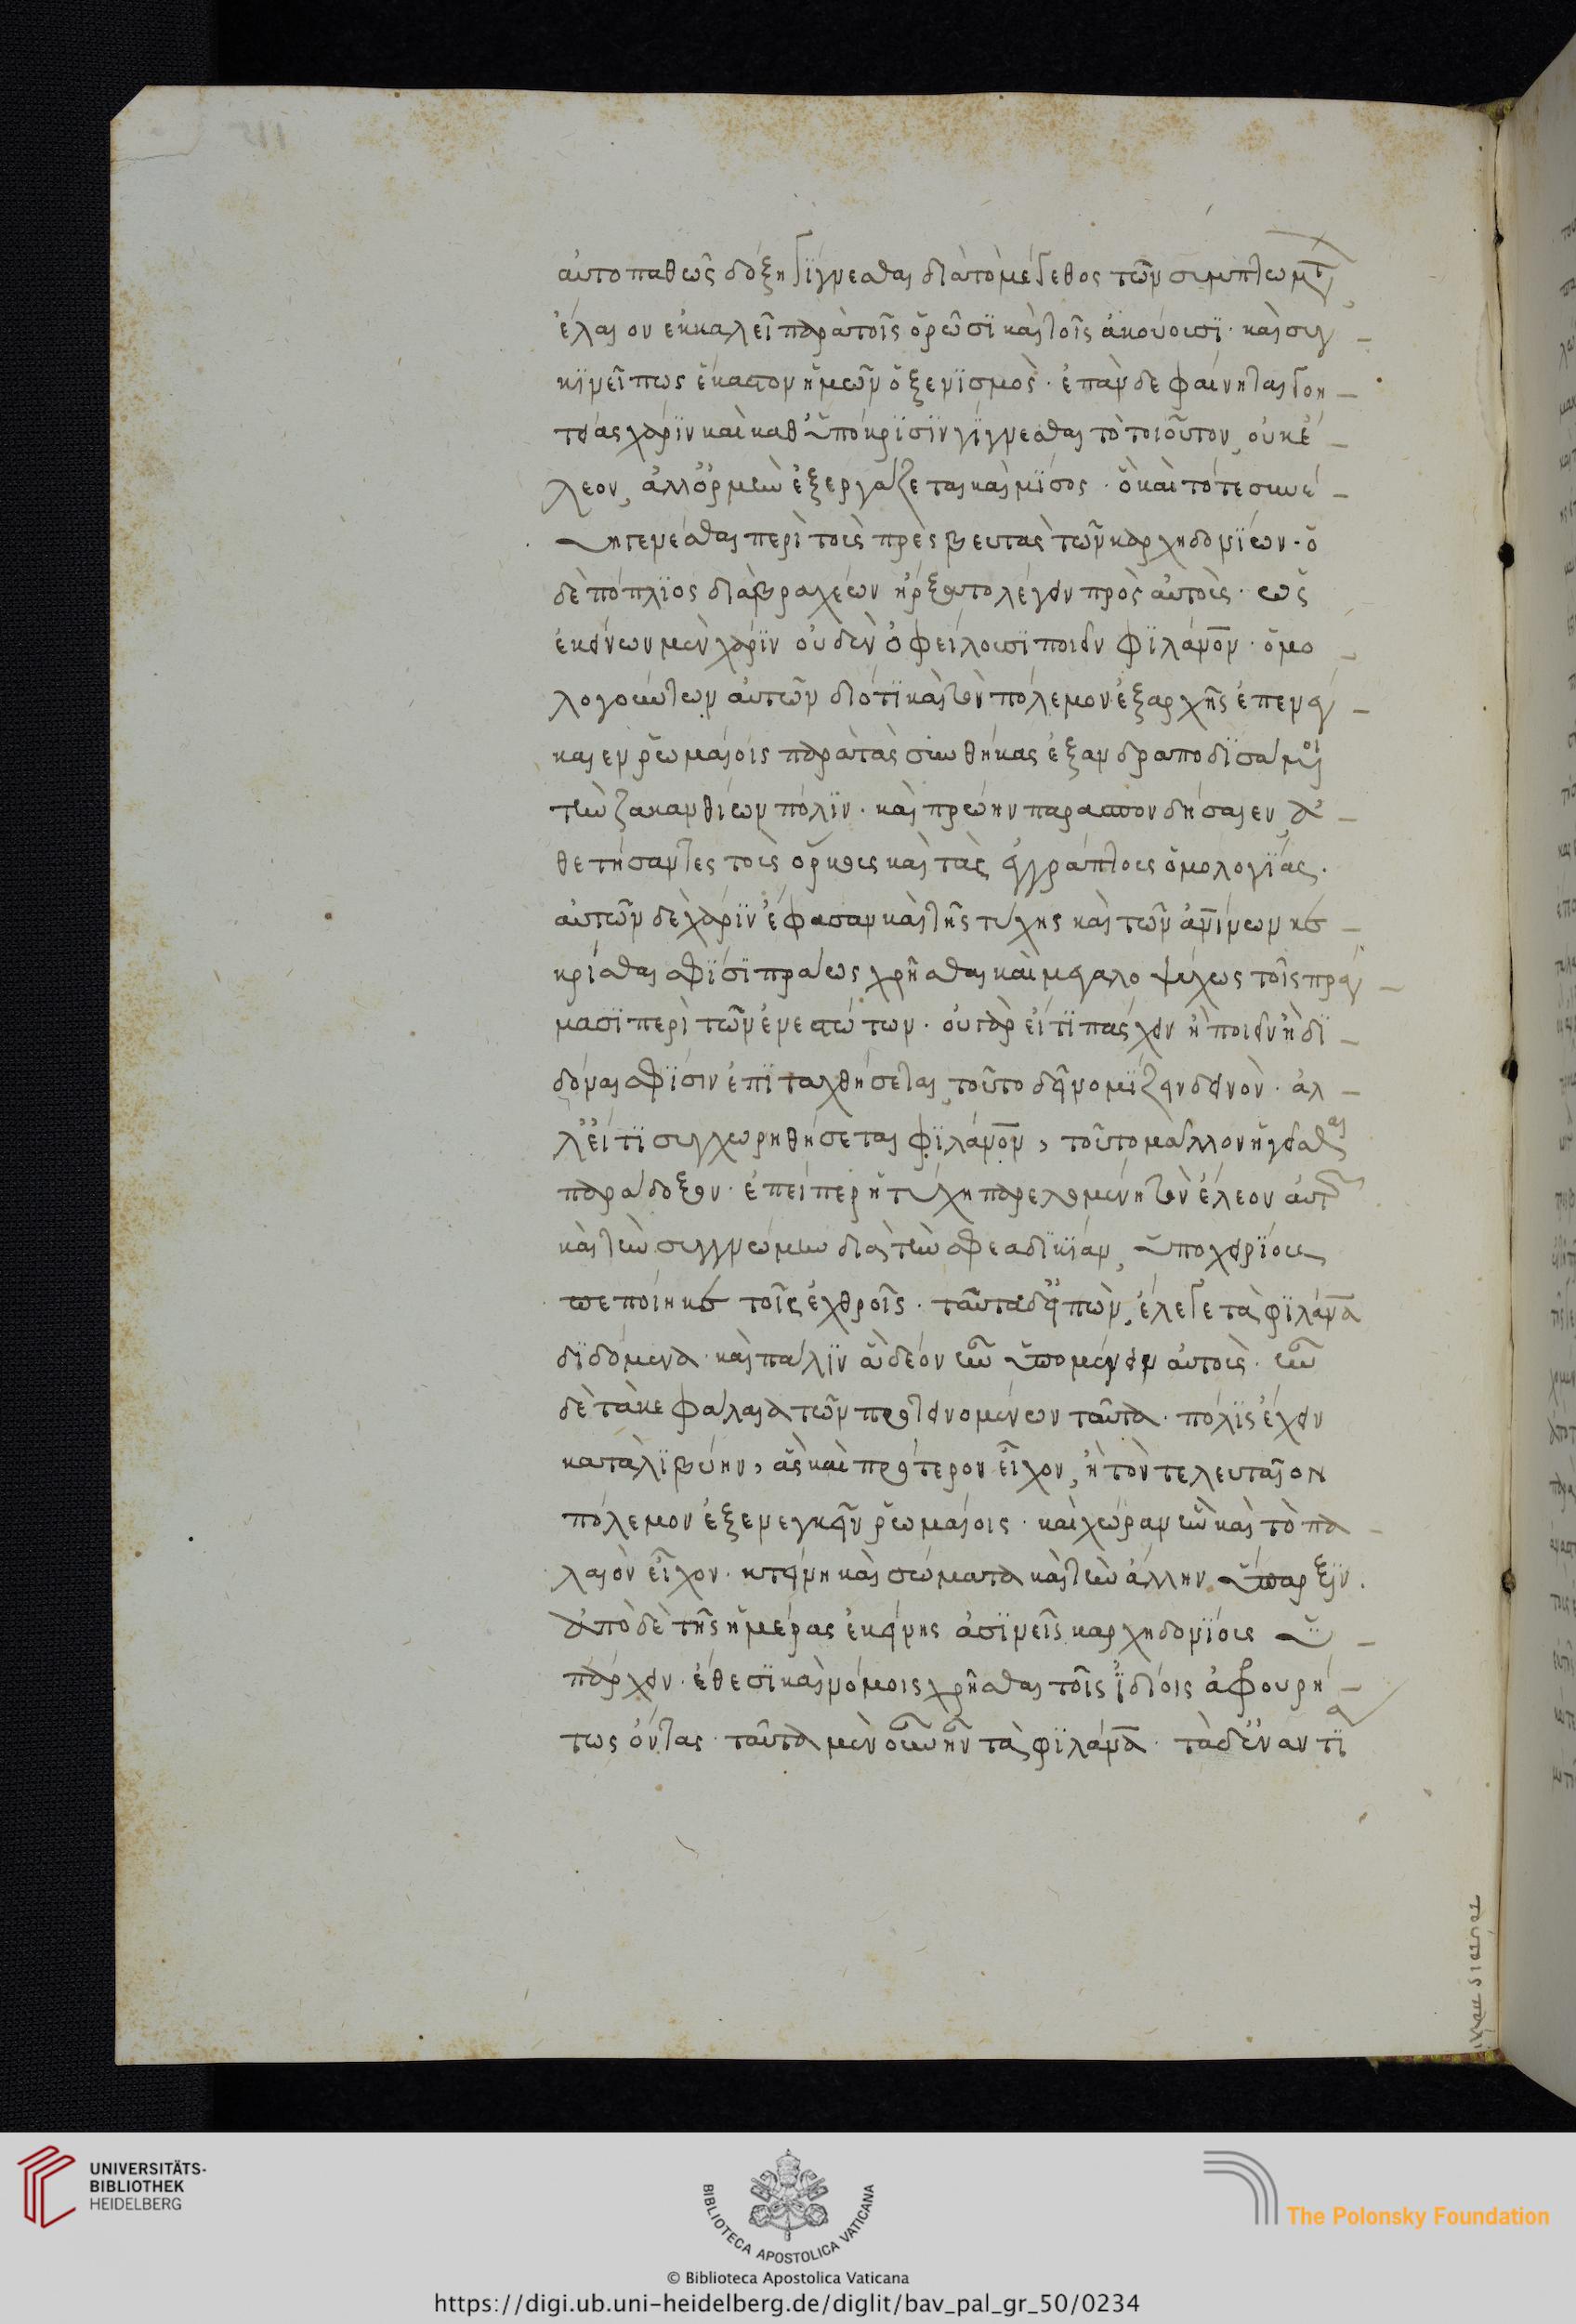 αὐτοπαθῶς δόξη γίγνεσθαι διὰ τὸ μέγεθος τῶν συμπτωμτ
ἔλαιον ἐκκαλεῖ παρὰ τοῖς ὁρῶσι καὶ τοῖς ἀκούουσι· καὶ συγ
κινεῖ πως ἕκαστον ἡμῶν ὁ ξενισμὸς· ἐπὰν δε φαίνηται γοη
τείας χάριν καὶ καθ' ὑπόκρισιν γίγνεσθαι τὸ τοιοῦτον, οὐκ ἔ
λεον, ἀλλ' ὀρμὴν ἐξεργάζεται καὶ μῖσος· ὃ καὶ τότε συνέ
γενέσθαι περὶ τοὺς πρέσβευτας τῶν καρχηδονίων· ὁ
δὲ πόπλιος διὰ βραχέων ἤρξατο λέγειν πρὸς αὐτοὺς· ὡς
ἐκείνων μὲν χάριν οὐδὲν ὀφείλουσι ποιεῖν φιλάνον· ὁμο
λογούντων αὐτῶν διότι καὶ τὸν πόλεμον ἐξαρχῆς ἐπενέγ
καιεν ῥωμαίοις παρὰ τὰς συνθήκας ἐξανδραποδισάμενοι
τὴν ζακανθίων πόλιν· καὶ πρώην παρασπονδήσαιεν ἀ
θετήσαντες τοὺς ὅρκους καὶ τὰς ἐγγράπτους ὁμολογίας·
αὐτῶν δὲ χάριν ἔφασαν καὶ τῆς τύχης καὶ τῶν ἀνίνων κε
κρίσθαι σφίσι πράως χρῆσθαι καὶ μεγαλοψύχως τοῖς πράγ
μασι περὶ τῶν ἐνεστώτων· οὐ γὰρ εἴ τι πάσχειν ἢ ποιεῖν ἢ δι
δόναι σφίσιν ἐπιταχθήσεται, τοῦτο δεῖ νομίζειν δεινὸν· ἀλ
λ' εἴ τι συγχωρηθήσεται φιλάνον, τοῦτο μᾶλλον ἡγεῖσθαι
παράδοξον· ἐπείπερ ἡ τύχη παρελομένη τὸν ἔλεον αὐτ
καὶ τὴν συγγνώμην διὰ τὴν σφε ἀδικίαν, ὑποχειρίους
πεποίηκε τοῖς ἐχθροῖς· ταῦτα δ' εἰπὼν, ἔλεγε τὰ φιλάνα
διδόμενα· καὶ πάλιν ἃ δέον ἦν ὑπομένειν αὐτοὺς· ἦν
δὲ τὰ κεφάλαια τῶν προτεινομένων ταῦτα· πόλις ἔχειν
κατὰ λιβύην, ἃς καὶ πρότερον εἶχον, ἢ τὸν τελευταῖον
πόλεμον ἐξενεγκεῖν ῥωμαίοις· καὶ χώραν ἣν καὶ τὸ πα
λαιὸν εἶχον· κτήνη καὶ σώματα καὶ τὴν ἄλλην ὕπαρξιν·
ἀπὸ δὲ τῆς ἡμέρας ἐκείνης ἀσινεῖς καρχηδονίους ὑ
πάρχειν· ἔθεσι καὶ νόμοις χρῆσθαι τοῖς ἰδίοις ἀφρουρή
τως ὄντας· ταῦτα μὲν οὖν ἦν τὰ φιλάνα· τὰ δ' ἐναντί
UNIVERSITÄTS-
BIBLIOTHEK
HEIDELBERG
BIBLIOTECA APOSTOLICA VATICANA
The Polonsky Foundation
© Biblioteca Apostolica Vaticana
https://digi.ub.uni-heidelberg.de/diglit/bav_pal_gr_50/0234